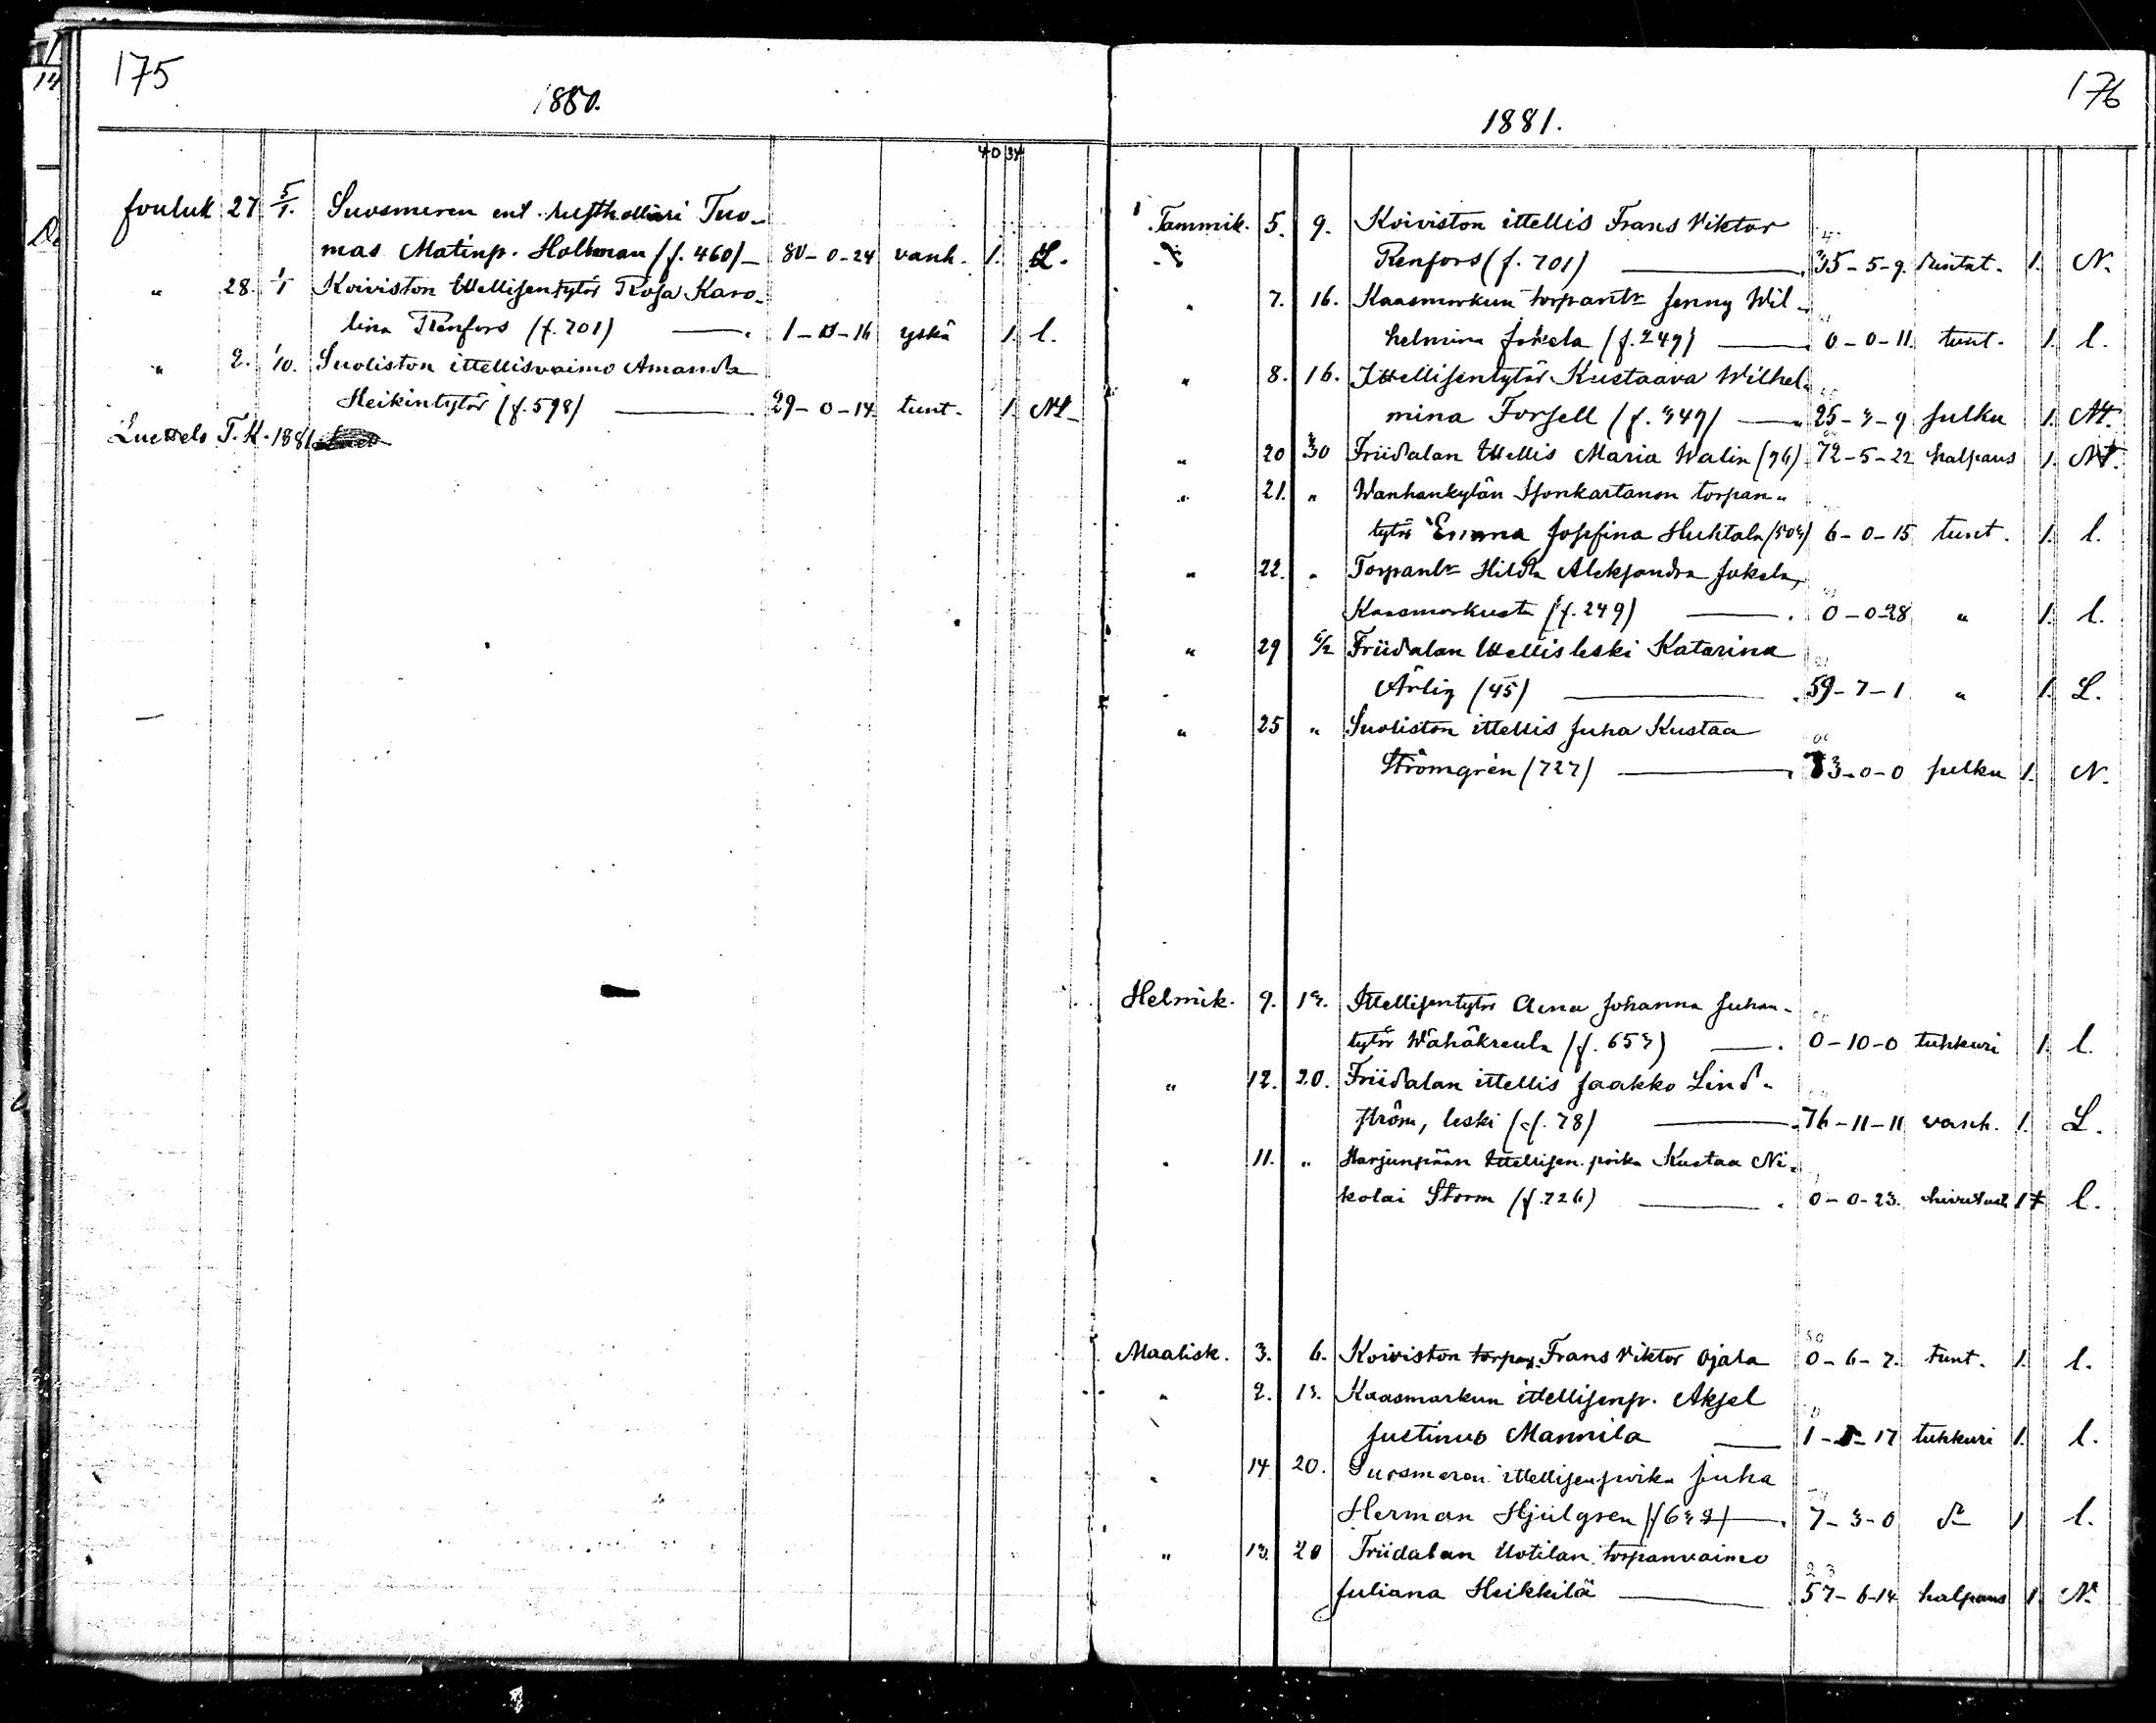 175
1880.
40 34
Jouluk 27 5/1. Suosmeren ent. rusthollari Tuo-
mas Matinp. Hollman (f. 460) - 80-0-24 vanh. 1. L.
" 28. 1/1 Koiviston ittellisentytör Rosa Karo-
lina Renfors (f. 701) 1-11-16 yskä 1. l.
" 2. 1/10. Suoliston ittellisvaimo Amanda
Heikintytör (f. 598) 29-0-14 tunt. 1. Nt
Luettels T.K. 1881
176
1881.
Tammik. 5. 9. Koiviston ittellis Frans Viktor
Renfors (f. 701) 35-5-9. rintat. 1. N.
" 7. 16. Kaasmarkun torpantr Jenny Wil-
helmina Jokela (f. 249) 0-0-11. tunt. 1. l.
" 8. 16. Ittellisentytör Kustaava Wilhel-
mina Forsell (f. 349) 25-3-9 julku 1. Nt.
" 20 30 Friidalan ittellis Maria Walin (96) 72-5-22 halpaus 1. Nt.
" 21. " Wanhankylän Isonkartanon torpan-
tytör Emma Josefina Huhtala (504) 6-0-15 tunt. 1. l.
" 22. " Torpantr Hilda Aleksandra Jokela,
Kaasmarkusta (f. 249) 0-0-28 " 1. l.
" 29 6/2 Friidalan ittellisleski Katarina
Ärlig (45) 59-7-1 " 1. L.
" 25 " Suoliston ittellis Juha Kustaa
Strömgrén (727) 73-0-0 julku 1. N.
Helmik. 9. 13. Ittellisentytör Aina Johanna Juhan-
tytör Wähäkreula (f. 653) 0-10-0 tuhkuri 1. l.
" 12. 20. Friidalan ittellis Jaakko Lind-
ström, leski (f. 78) 76-11-11 vanh. 1. L.
" 11. " Harjunpään ittellisen poika Kustaa Ni-
kolai Storm (f. 726) 0-0-23. 1 l.
Maalisk. 3. 6. Koiviston torpanp. Frans Viktor Ojala 0-6-7. tunt. 1. l.
" 2. 13. Kaasmarkun ittellisenp. Aksel
Justinus Mannila 1-5-17 tuhkuri 1. l.
" 14 20. Suosmeren ittellisenpoika Juha
Herman Hjulgren (f 638) 7-3-0 dº 1 l.
" 13. 20 Friidalan Uotilan torpanvaimo
Juliana Heikkilä 57-6-14 halpaus 1. N.